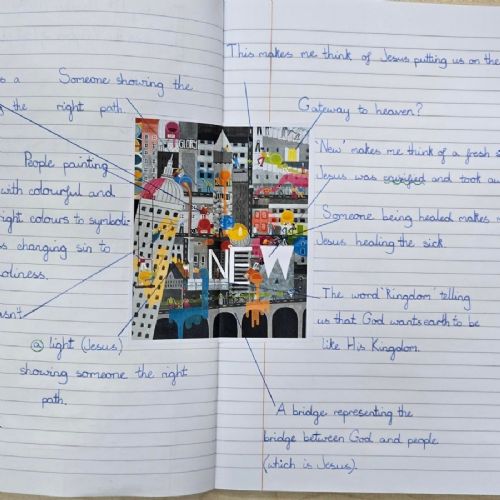 s a Someone showing the
the right path.
People painting
with colourful and
right colours to symbolic
changing sin to
oliness.
asn't
a light (Jesus)
showing someone the right
path.
This makes me think of Jesus putting us on the
Gateway to heaven?
'New' makes me think of a fresh s
Jesus was and took au
Someone being healed makes
Jesus healing the sick.
The word 'Kingdom' telling
us that God wants earth to be
like His Kingdom.
A bridge representing the
bridge between God and people
(which is Jesus).
NEW